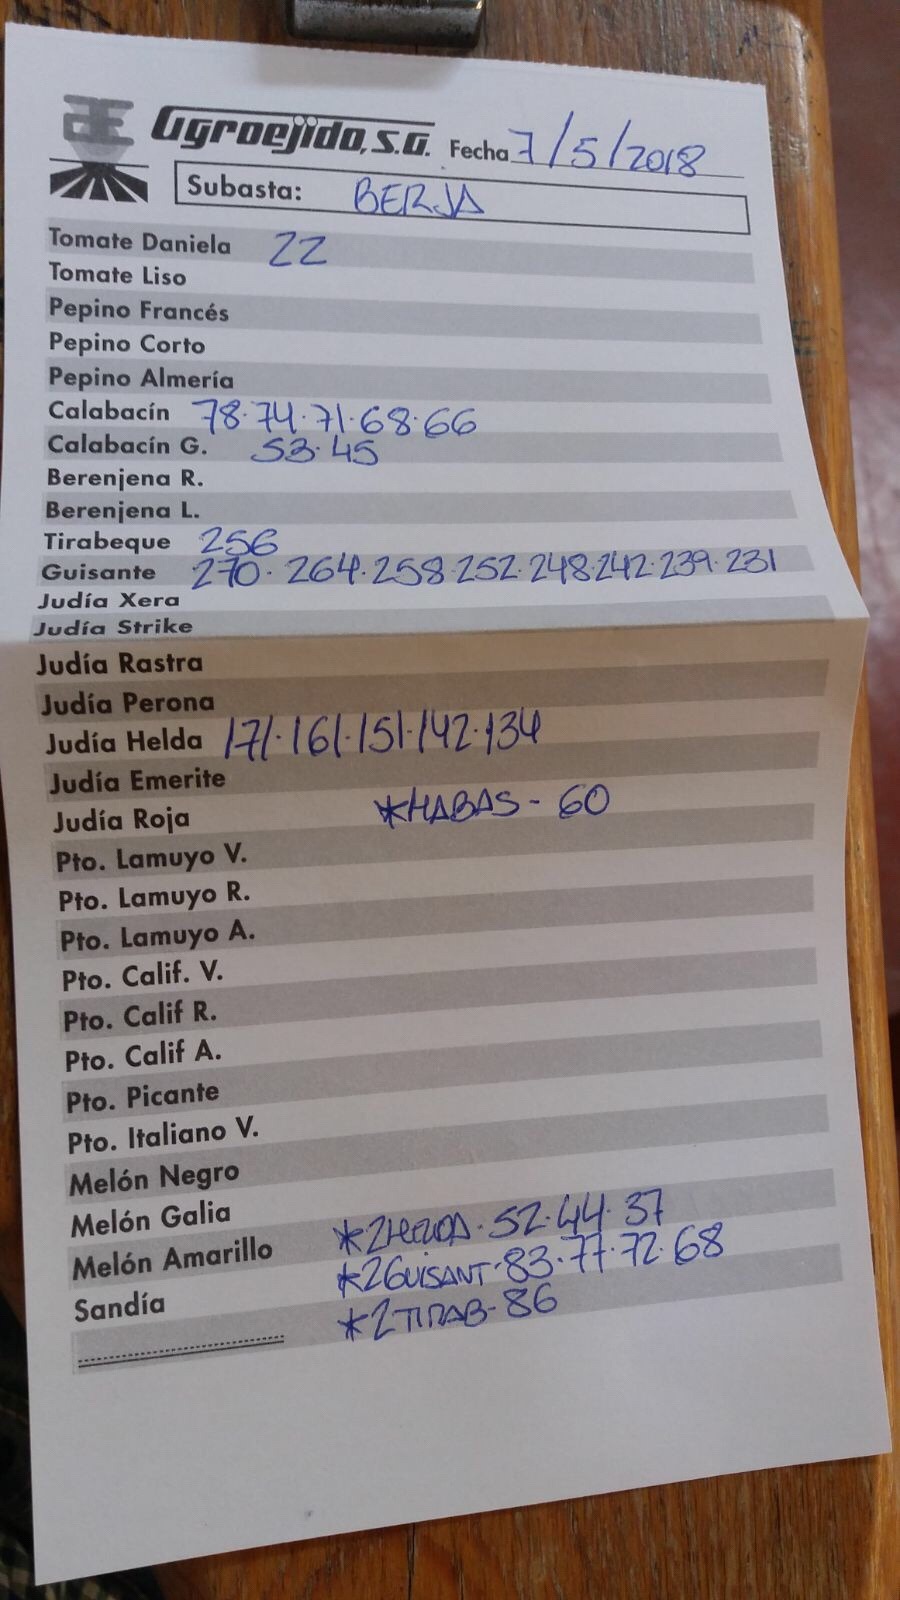 Agroejido, S.A. Fecha 7/5/2018
Subasta: BERJA
Tomate Daniela 22
Tomate Liso
Pepino Francés
Pepino Corto
Pepino Almería
Calabacín 78·74·71·68·66
Calabacín G. 53·45
Berenjena R.
Berenjena L.
Tirabeque 256
Guisante 270·264·258·252·248·242·239·231
Judía Xera
Judía Strike
Judía Rastra
Judía Perona
Judía Helda 171·161·151·142·134
Judía Emerite
Judía Roja *HABAS-60
Pto. Lamuyo V.
Pto. Lamuyo R.
Pto. Lamuyo A.
Pto. Calif. V.
Pto. Calif R.
Pto. Calif A.
Pto. Picante
Pto. Italiano V.
Melón Negro
Melón Galia *2HELDA·52·44·37
Melón Amarillo *2GUISANT·83·77·72·68
Sandía *2TIRAB-86